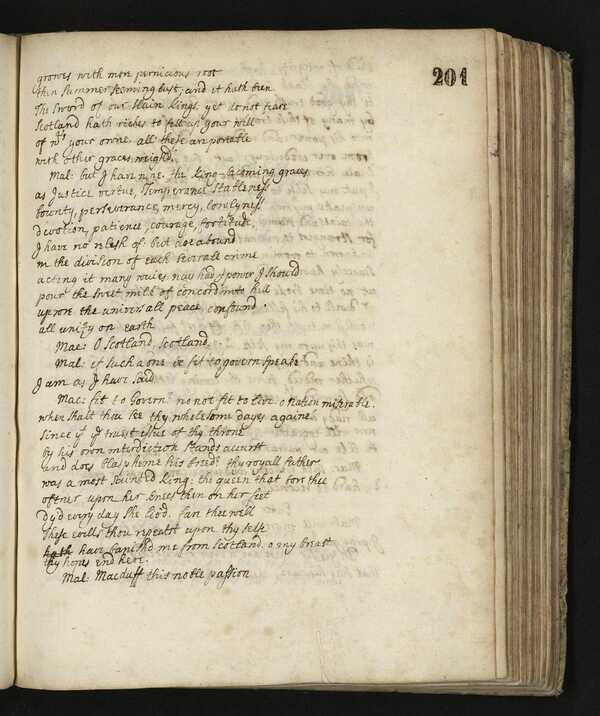 201
growes with more pernicious root
then Summer seeming lust, and it hath been
The Sword of our slain Kings. yet do not feare
Scotland hath riches to fill up your will
of your owne. all these are portable
with other graces weigh'd.
Mal: but I have none. the king-becoming graces
as Justice vertue, Temperance Stableness
bounty, perseverance, mercy, lowlyness
devotion, patience, courage, fortitude,
I have no relesh of. but doe abound
in the division of each severall crime
acting it many waies. nay had I power I should
pour the sweet milk of concord into hell
uprore the universall peace confound.
all unity on earth
Mac: O Scotland, Scotland.
Mal: if such a one be fit to govern speake
I am as I have said
Mac: fit to Govern? no not fit to live. o Nation miserable.
when shalt thou see thy wholesome dayes againe
since yt ye truest issue of thy throne
by his own interdiction stands accurst
and does blaspheme his breed? thy royall father
was a most Sainted King: the queen that bore thee
oftner upon her knees then on her feet
dyd every day she liv'd. fare thee well
These evills thou repeatst upon thy self
hath have banish'd me from Scotland. o my breast
thy hopes end here.
Mal: Macduff this noble passion